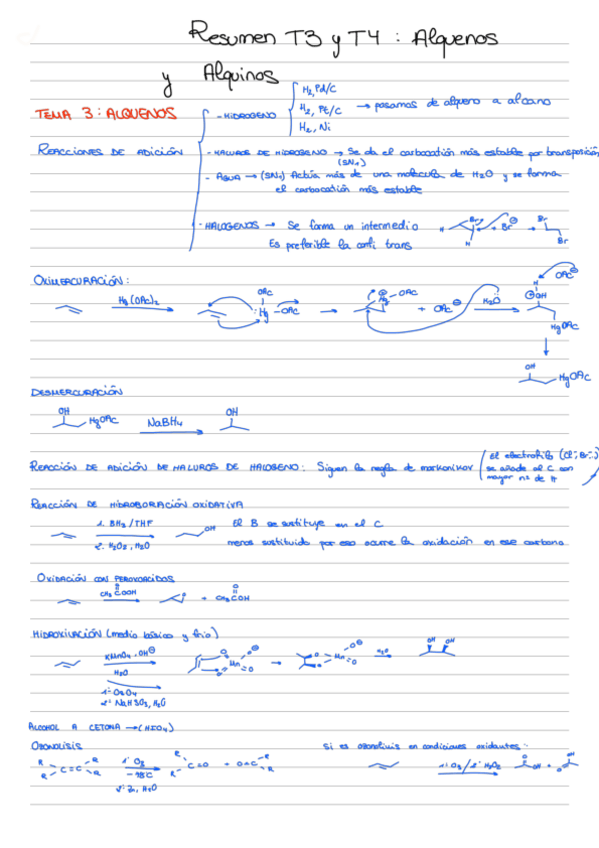 Resumen T3 y T4 : Alquenos
y Alquinos
TEMA 3: ALQUENOS
REACCIONES DE ADICIÓN
- HIDRÓGENO
H₂, Pd/C
H₂, Pt/C
H₂, Ni
→ pasamos de alqueno a alcano
- HALUROS DE HIDRÓGENO → Se da el carbocatión más estable por transposición
(SN₁)
- AGUA → (SN₁) Actúa más de una molécula de H₂O y se forma
el carbocatión más estable
- HALÓGENOS → Se forma un intermedio
Es preferible la anti trans
H
H
Br
+ Br⊖
Br
Br
OXIMERCURACIÓN:
Hg(OAc)₂
OAc
:Hg-OAc
Hg-OAc
+ OAc⊖
H₂O
OAc⊖
H
⊕OH
HgOAc
OH
HgOAc
DESMERCURACIÓN
OH
HgOAc
NaBH₄
OH
REACCIÓN DE ADICIÓN DE HALUROS DE HALÓGENO: Siguen la regla de markonikov
el electrófilo (Cl; Br:)
se añade al C con
mayor nº de H
REACCIÓN DE HIDROBORACIÓN OXIDATIVA
1. BH₃/THF
2. H₂O₂, H₂O
OH
El B se sustituye en el C
menos sustituido por eso ocurre la oxidación en ese carbono
OXIDACIÓN CON PEROXOÁCIDOS
O
CH₃COOH
O
+ CH₃COH
O
HIDROXILACIÓN (medio básico y frío)
KMnO₄, OH⊖
H₂O
1: OsO₄
2: NaHSO₃, H₂O
H₂O
OH OH
ALCOHOL A CETONA → (HIO₄)
OZONÓLISIS
R R
C=C
R R
1: O₃
-78ºC
2: Zn, H₂O
R
C=O
R
+ O=C
R
R
Si es ozonólisis en condiciones oxidantes:
1: O₃/2: H₂O₂
O
OH
+
O
OH